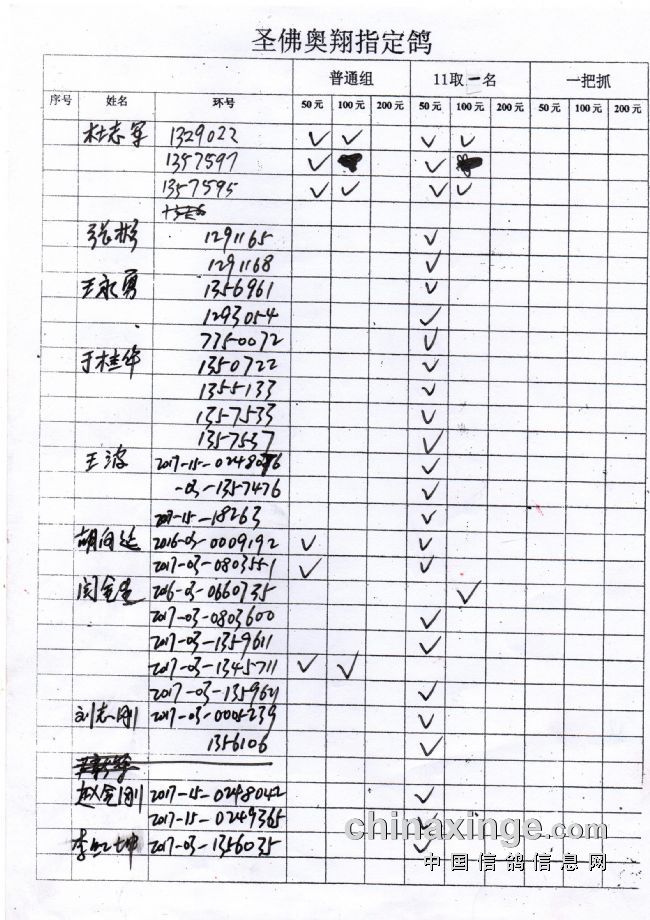 圣佛奥翔指定鸽
普通组 11取一名 一把抓
序号 姓名 环号 50元 100元 200元 50元 100元 200元 50元 100元 200元
杜志军 1329022 ✓ ✓ ✓ ✓
1357597 ✓ ✓
1357595 ✓ ✓ ✓ ✓
张彬 1291165 ✓
1291168 ✓
王永勇 1356961 ✓
1293054 ✓
7750072 ✓
于桂华 1350722 ✓
1355133 ✓
1357533 ✓
1357537 ✓
王波 2017-15-0248076 ✓
-03-1357476 ✓
2017-15-18263 ✓
胡向 2016-03-0009192 ✓ ✓
2017-03-0803551 ✓ ✓
闫金 2016-03-0660735 ✓
2017-03-0803600 ✓
2017-03-1359611 ✓
2017-03-1345711 ✓ ✓
2017-03-135962 ✓
刘志刚 2017-03-0004239 ✓
1356106 ✓
赵金刚 2017-15-0248042 ✓
2017-15-0249365 ✓
李 坤 2017-03-1356035 ✓
chinaxinge.com
中国信鸽信息网